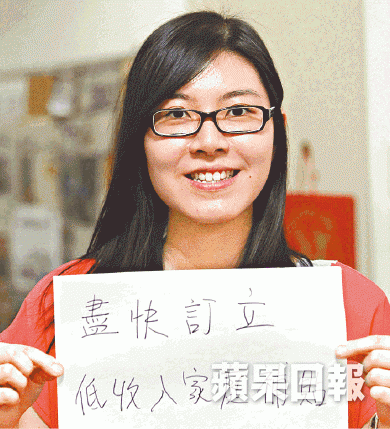 盡快訂立
低收入家庭
蘋果日報